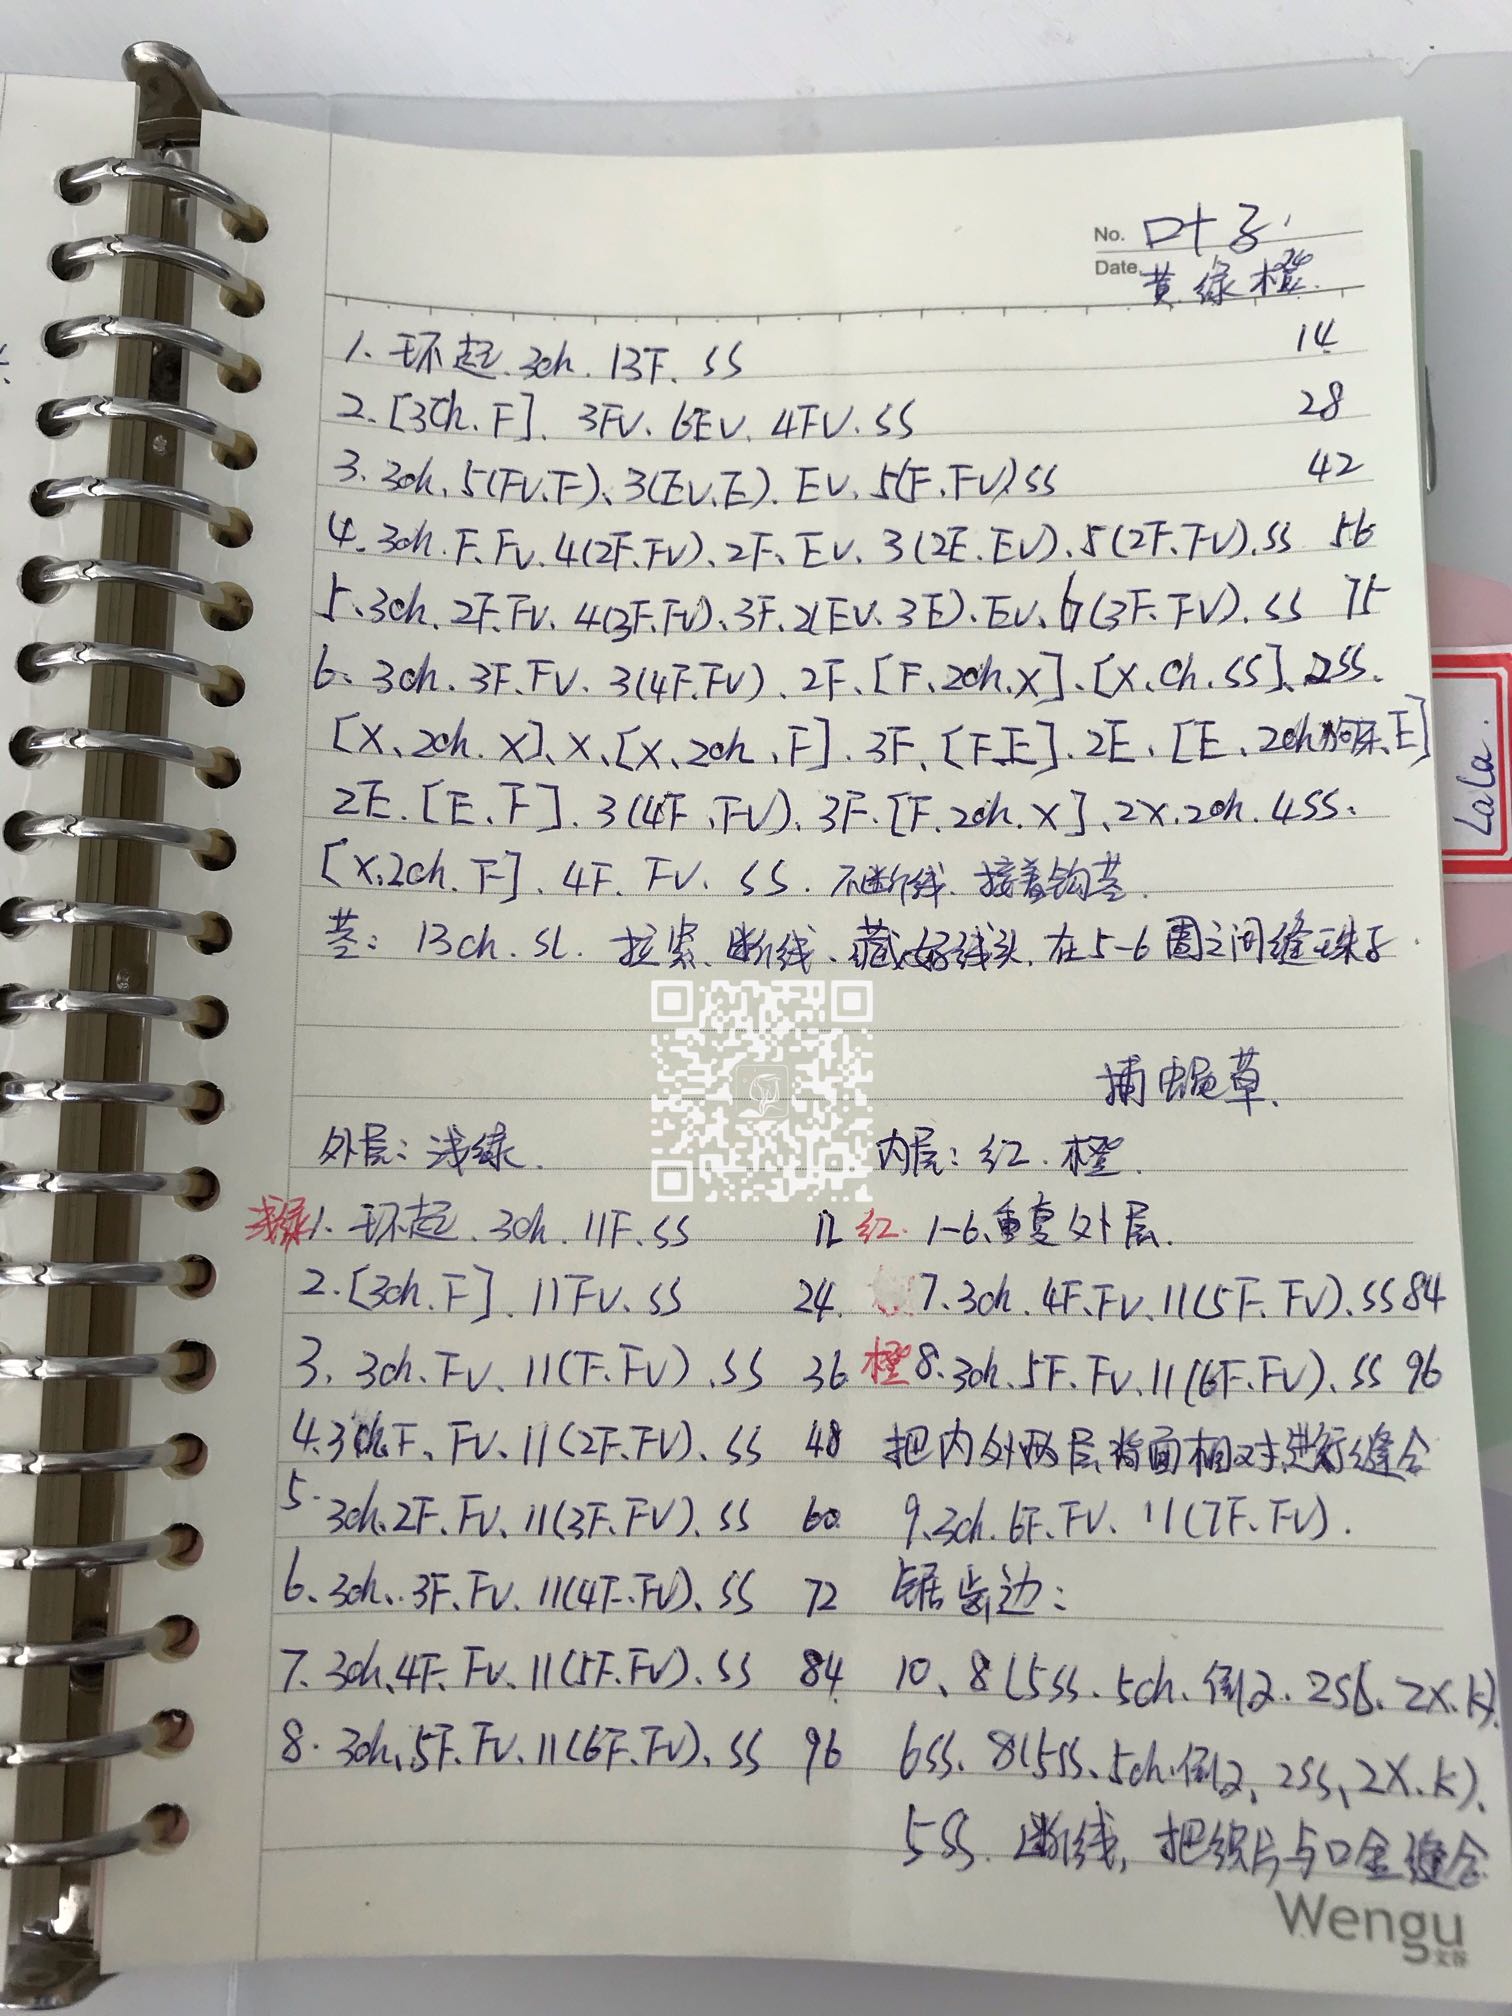 No. 叶子
Date. 黄.绿.橙.
1. 环起. 3ch. 13F. SS 14
2. [3ch. F]. 3FV. 6EV. 4FV. SS 28
3. 3ch. 5(FV.F)、3(EV.E). EV. 5(F.FV)SS 42
4. 3ch. F. FV. 4(2F.FV)、2F、EV. 3(2E.EV). 5(2F.FV).SS 56
5. 3ch. 2F.FV. 4(3F.FV)、3F. 2(EV. 3E). EV. 6(3F.FV). SS 75
6. 3ch. 3F.FV. 3(4F.FV). 2F. [F.2ch.X]. [X.ch.SS]. 2SS.
[X、2ch. X]、X、[X、2ch、F]. 3F、[F.E]. 2E、[E、2ch狗牙、E]
2E. [E、F]. 3(4F、FV)、3F. [F.2ch.X]、2X.2ch. 4SS.
[X.2ch. F]. 4F. FV. SS. 不断线. 接着钩茎.
茎: 13ch. SL. 拉紧、断线、藏好线头. 在5-6圈之间缝珠子.
LaLa.
捕蝇草.
外层: 浅绿. 内层: 红. 橙.
浅绿1. 环起. 3ch. 11F. SS 12 红. 1-6、重复外层.
2. [3ch. F]. 11FV. SS 24. 7. 3ch. 4F.FV. 11(5F. FV). SS 84
3. 3ch. FV. 11(F.FV). SS 36 橙8. 3ch. 5F. FV. 11(6F.FV). SS 96
4. 3ch.F、FV. 11(2F.FV). SS 48 把内外两层背面相对进行缝合
5. 3ch. 2F. FV. 11(3F.FV). SS 60 9. 3ch. 6F. FV. 11(7F.FV).
6. 3ch. 3F. FV. 11(4F.FV). SS 72 锯齿边:
7. 3ch. 4F. FV. 11(5F.FV). SS 84 10、8(5SS. 5ch. 倒2. 2SS. 2X.K).
8. 3ch. 5F. FV. 11(6F.FV). SS 96 6SS. 8(5SS. 5ch. 倒2, 2SS、2X.K).
5SS. 断线, 把织片与口金缝合
Wengu
文谷